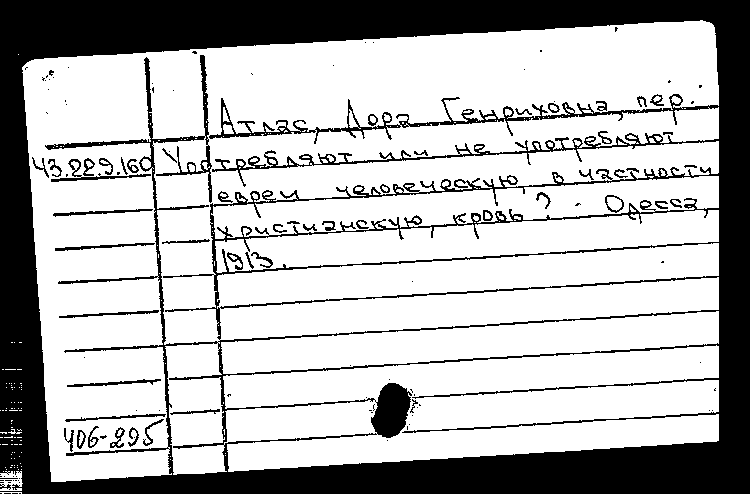 Атлас, Дора Генриховна, пер.
43.22.9.160 Употребляют или не употребляют
евреи человеческую, в частности
христианскую, кровь? - Одесса,
1913.
406-295